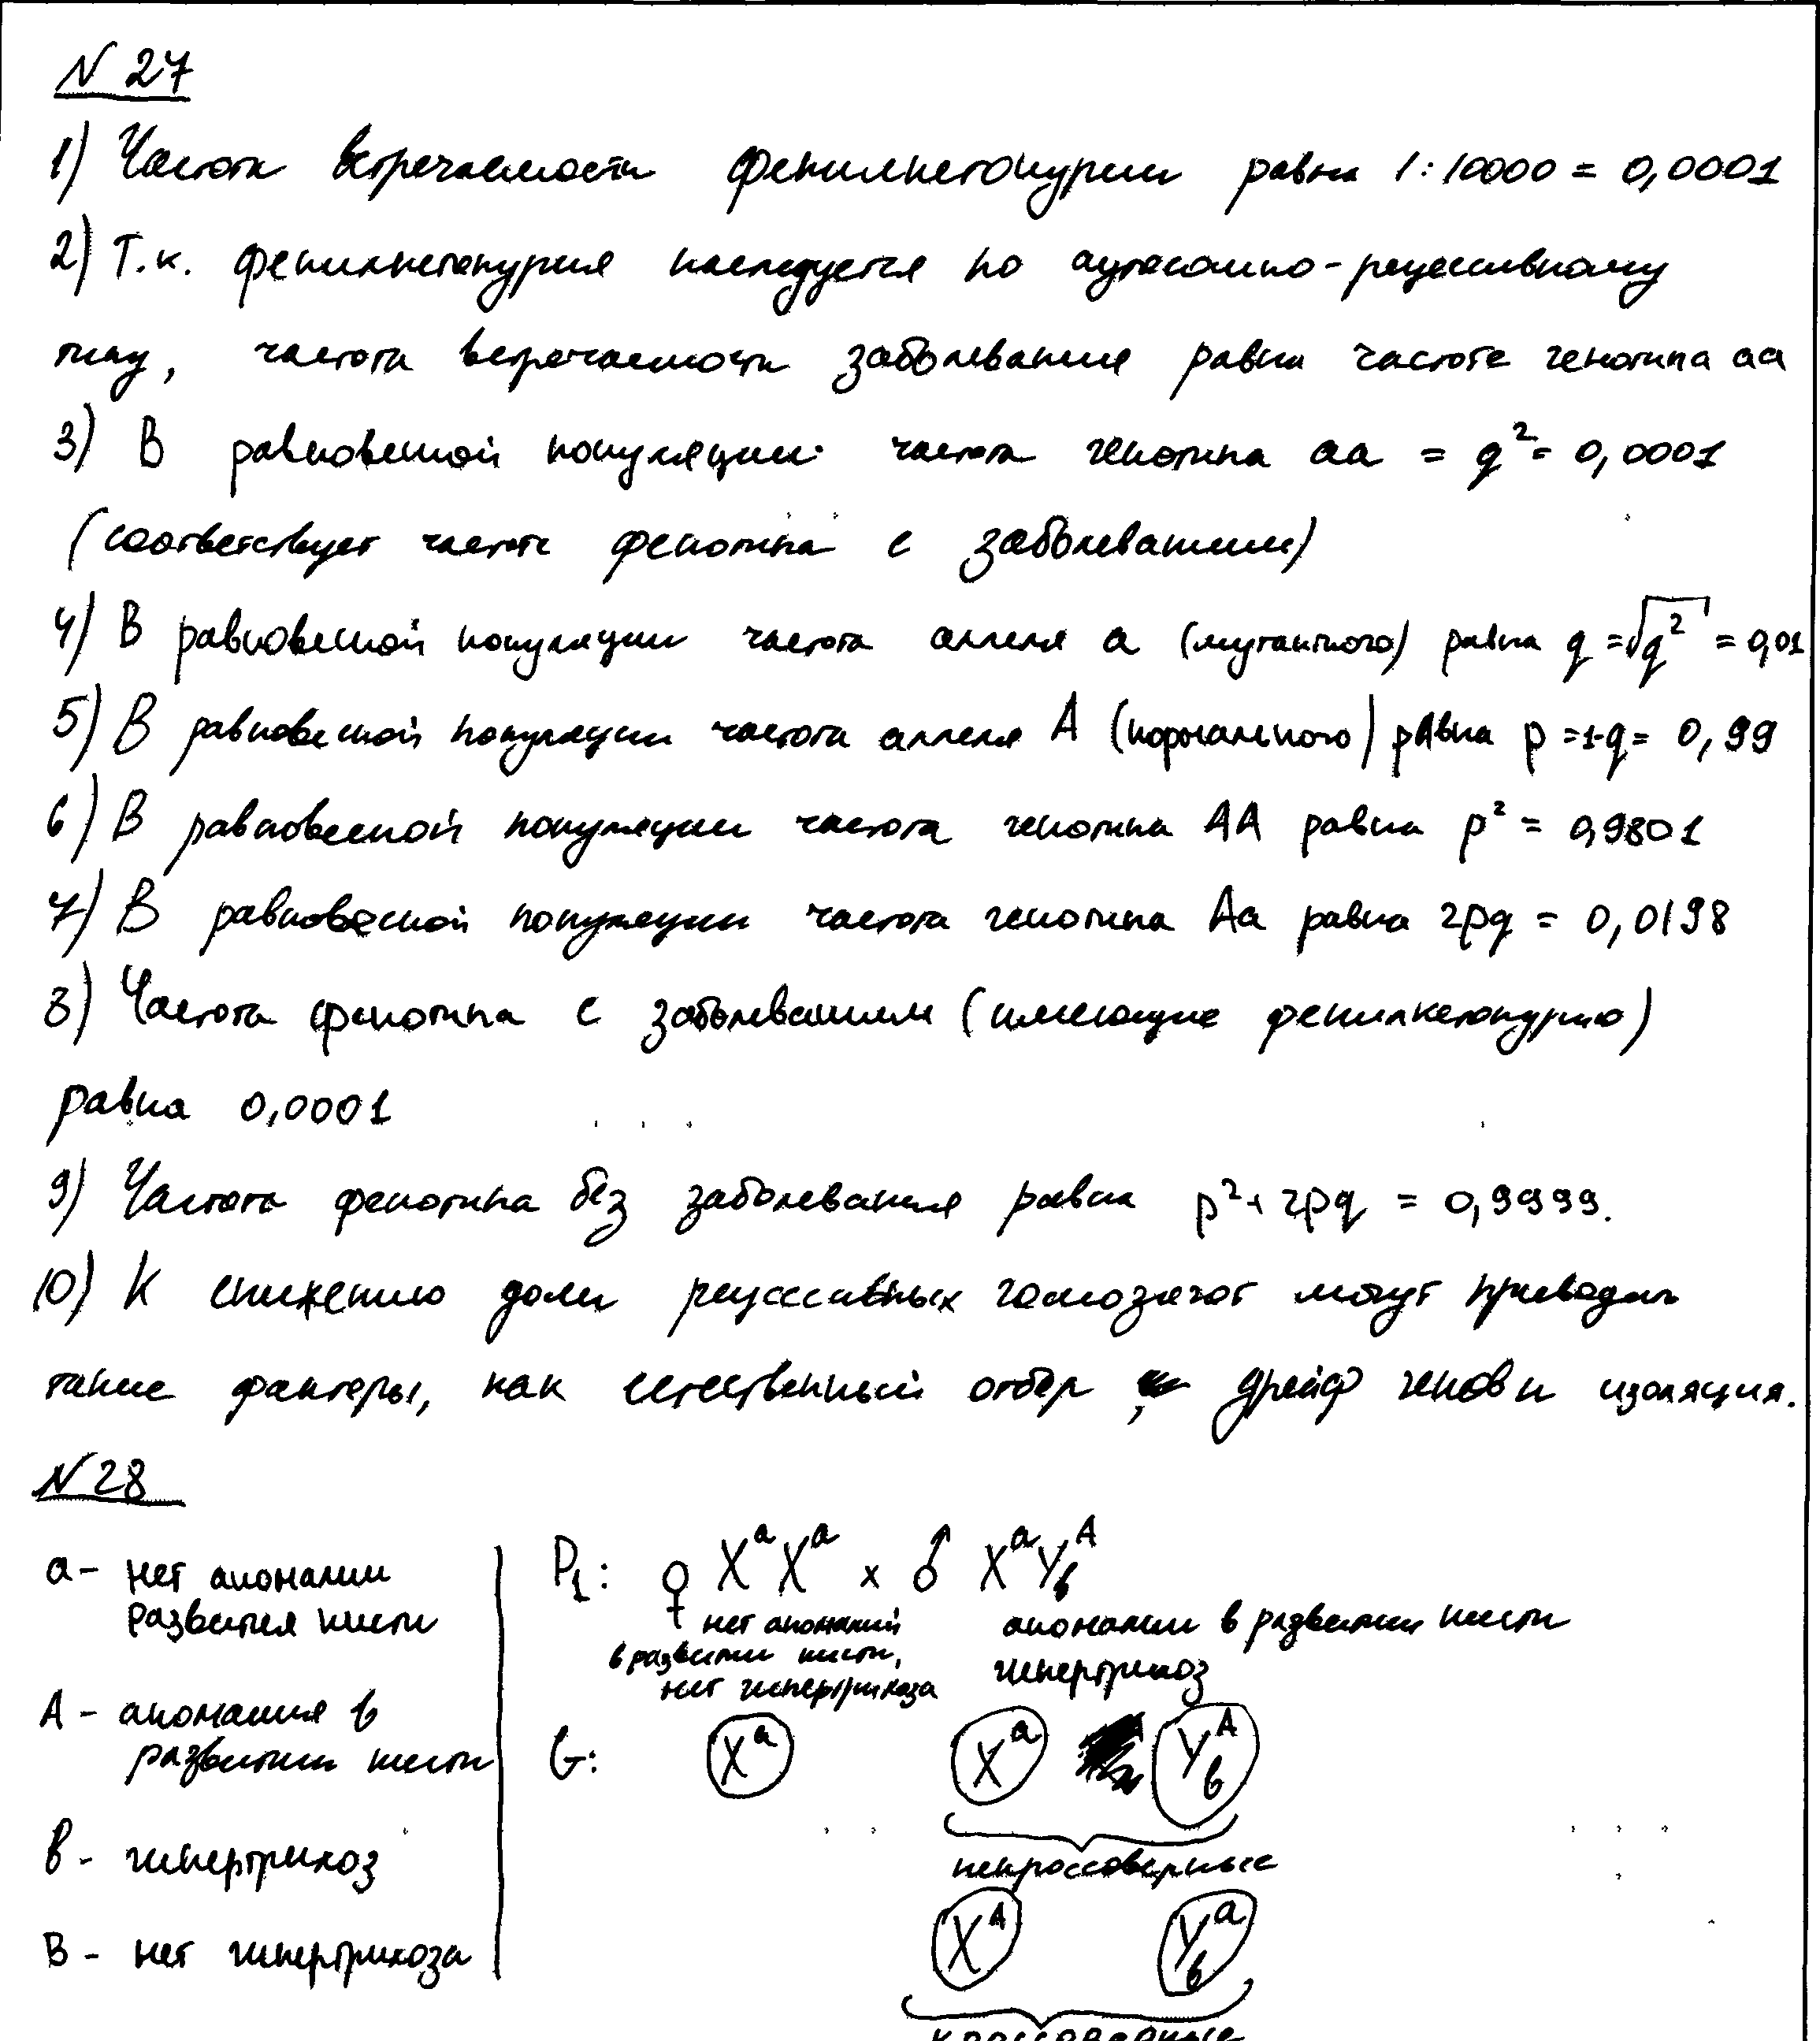 N 27
1) Частота встречаемости фенилкетонурии равна 1:10000 = 0,0001
2) Т.к. фенилкетонурия наследуется по аутосомно-рецессивному
типу, частота встречаемости заболевания равна частоте генотипа аа
3) В равновесной популяции частота генотипа аа = q² = 0,0001
(соответствует частоте фенотипа с заболеванием)
4) В равновесной популяции частота аллеля а (мутантного) равна q = √q² = 0,01
5) В равновесной популяции частота аллеля А (нормального) равна p = 1-q = 0,99
6) В равновесной популяции частота генотипа АА равна p² = 0,9801
7) В равновесной популяции частота генотипа Аа равна 2pq = 0,0198
8) Частота фенотипа с заболеванием (имеющие фенилкетонурию)
равна 0,0001
9) Частота фенотипа без заболевания равна p² + 2pq = 0,9999.
10) К снижению доли рецессивных гомозигот могут приводить
такие факторы, как естественный отбор, дрейф генов и изоляция.
N 28
а - нет аномалии
развития кисти
А - аномалия в
развитии кисти
в - гипертрихоз
В - нет гипертрихоза
P₁: ♀ XᵃXᵃ x ♂ XᵃYᴬв
нет аномалий
в развитии кисти,
нет гипертрихоза
аномалии в развитии кисти
гипертрихоз
G: Xᵃ Xᵃ Yᴬв
некроссоверные
Xᴬ Yᵃв
кроссоверные